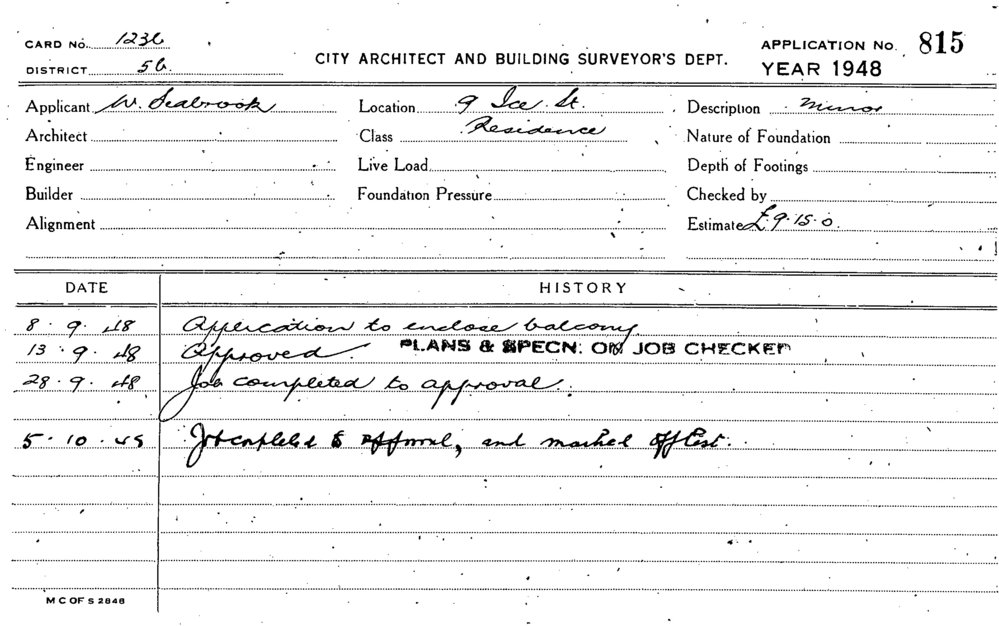 CARD No. 1236
DISTRICT 5b.
CITY ARCHITECT AND BUILDING SURVEYOR'S DEPT.
APPLICATION No. 815
YEAR 1948
Applicant W. Seabrook Location 9 Ice St. Description Minor
Architect Class Residence Nature of Foundation
Engineer Live Load Depth of Footings
Builder Foundation Pressure Checked by
Alignment Estimate £9.15.0
DATE HISTORY
8.9.48 Application to enclose balcony
13.9.48 Approved. PLANS & SPECN. ON JOB CHECKED
28.9.48 Job completed to approval.
5.10.48 Job completed to approval, and marked off list.
M C OF S 2848